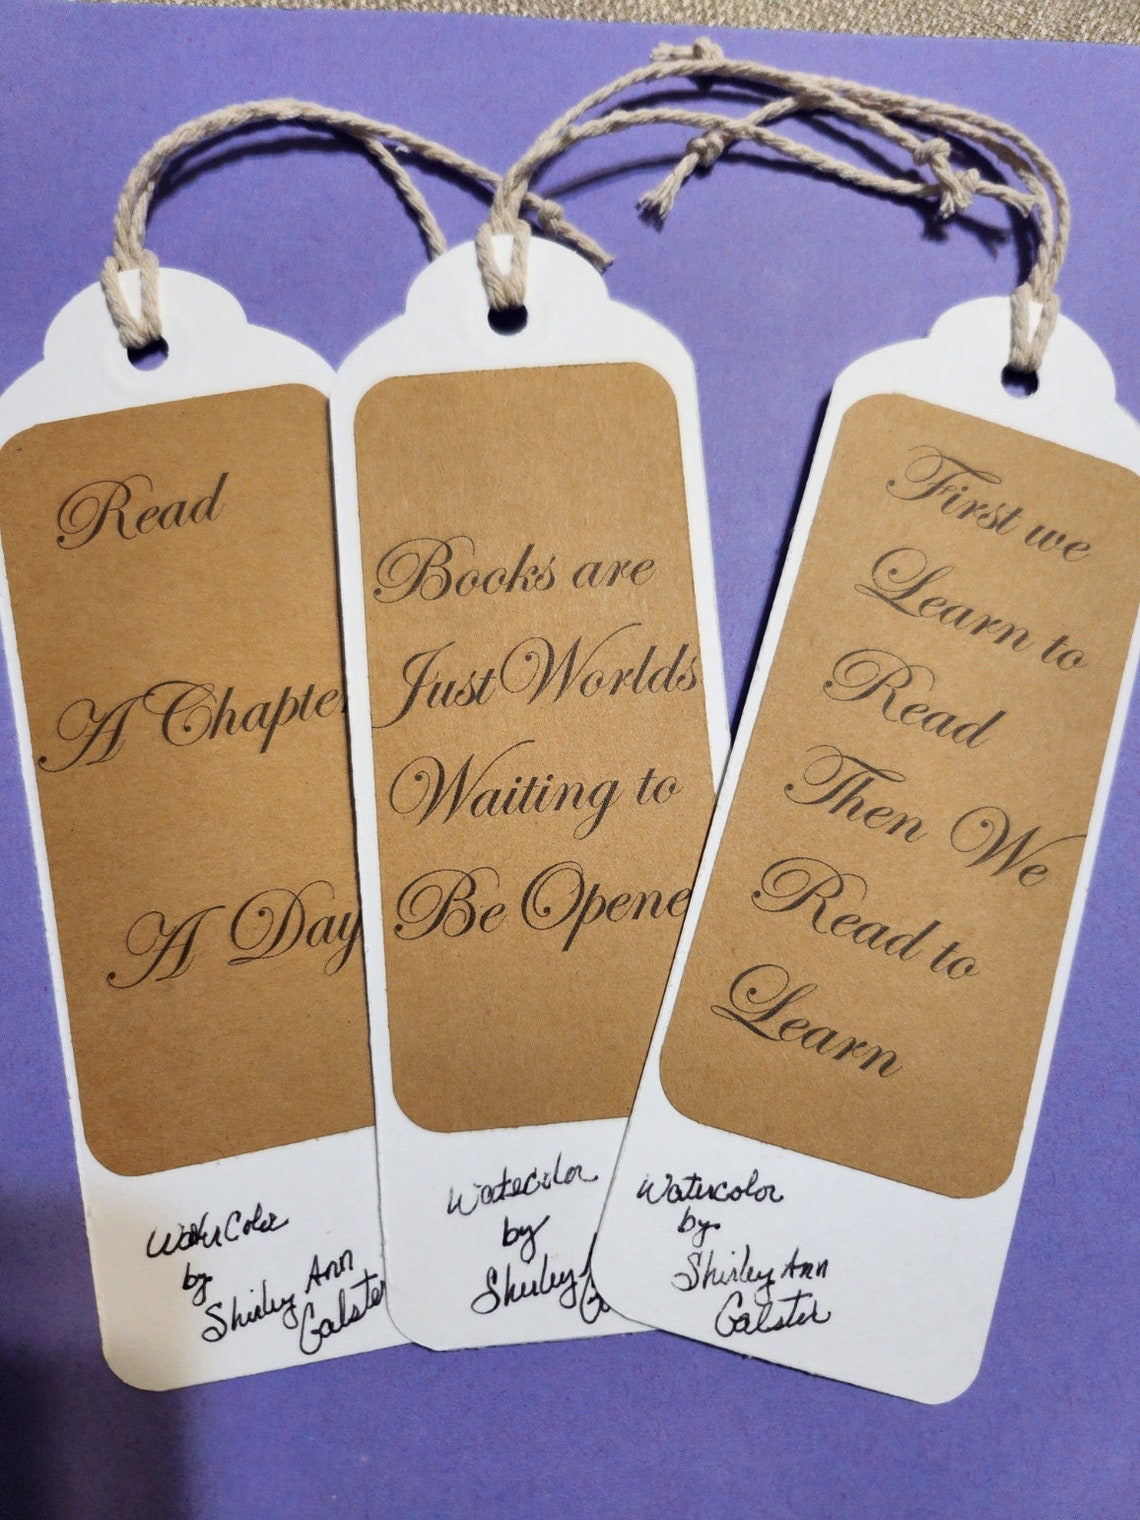 Read
A Chapter
A Day
Watercolor
by
Shirley Ann
Galster
Books are
Just Worlds
Waiting to
Be Opene
Watercolor
by
Shirley
First we
Learn to
Read
Then We
Read to
Learn
Watercolor
by
Shirley Ann
Galster